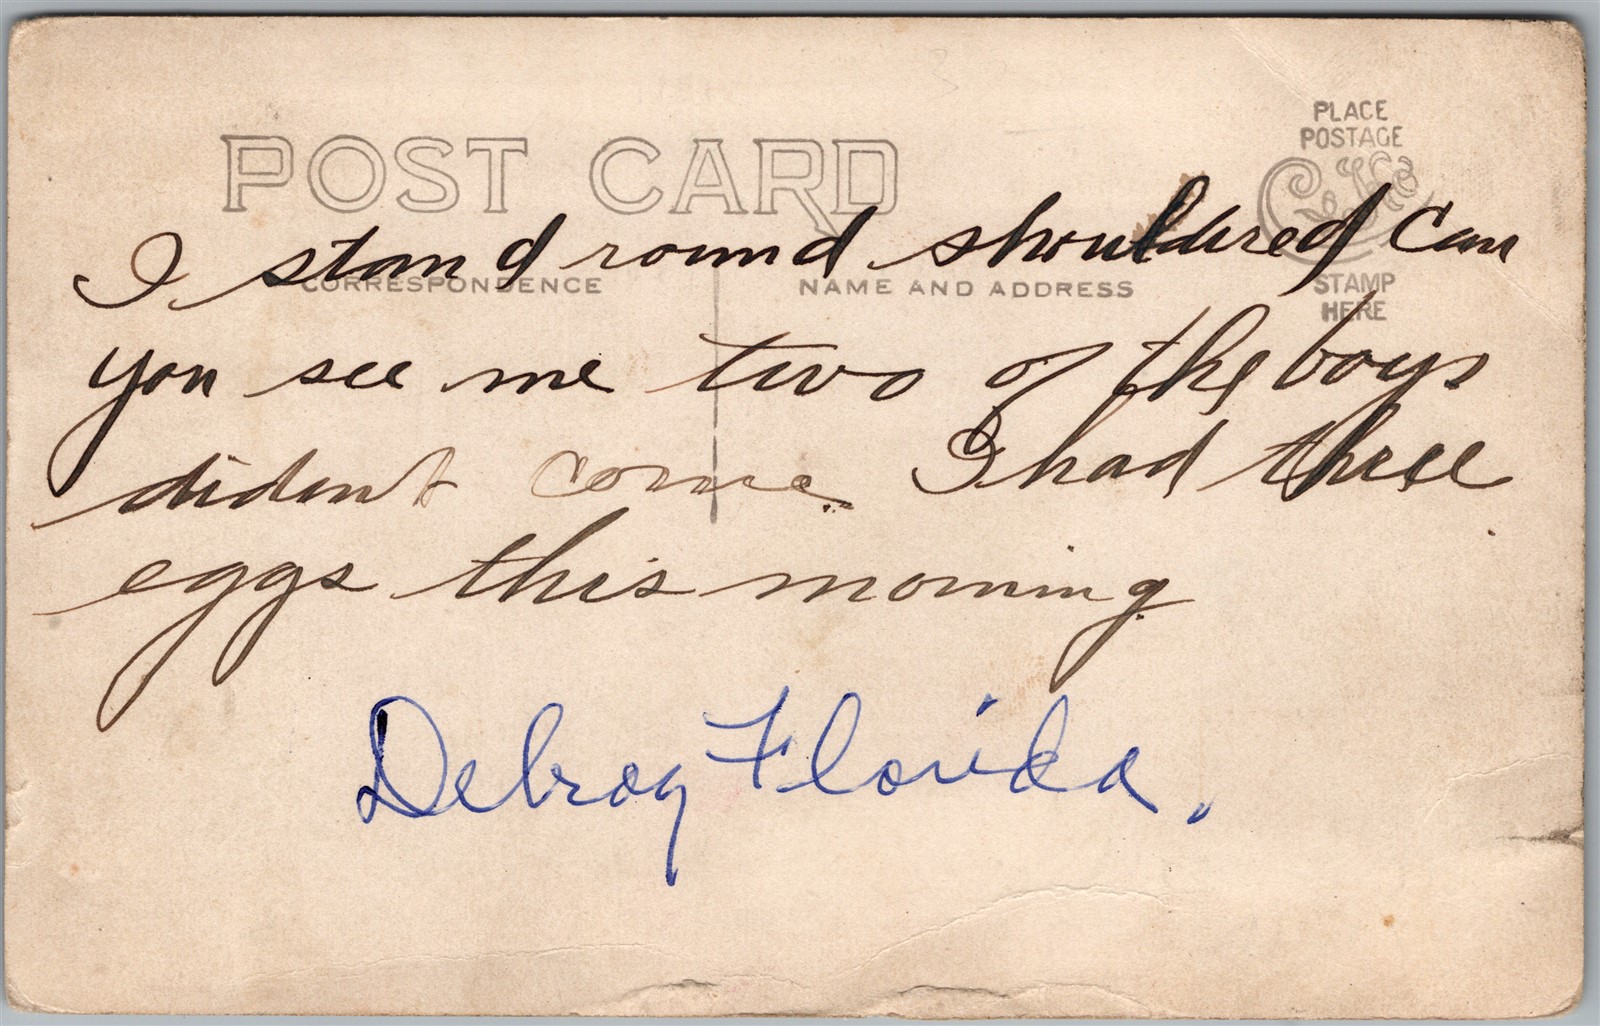 POST CARD
PLACE
POSTAGE
STAMP
HERE
CORRESPONDENCE
NAME AND ADDRESS
I stand round shouldered Can
you see me two of the boys
dident come I had three
eggs this morning
Delray Florida.